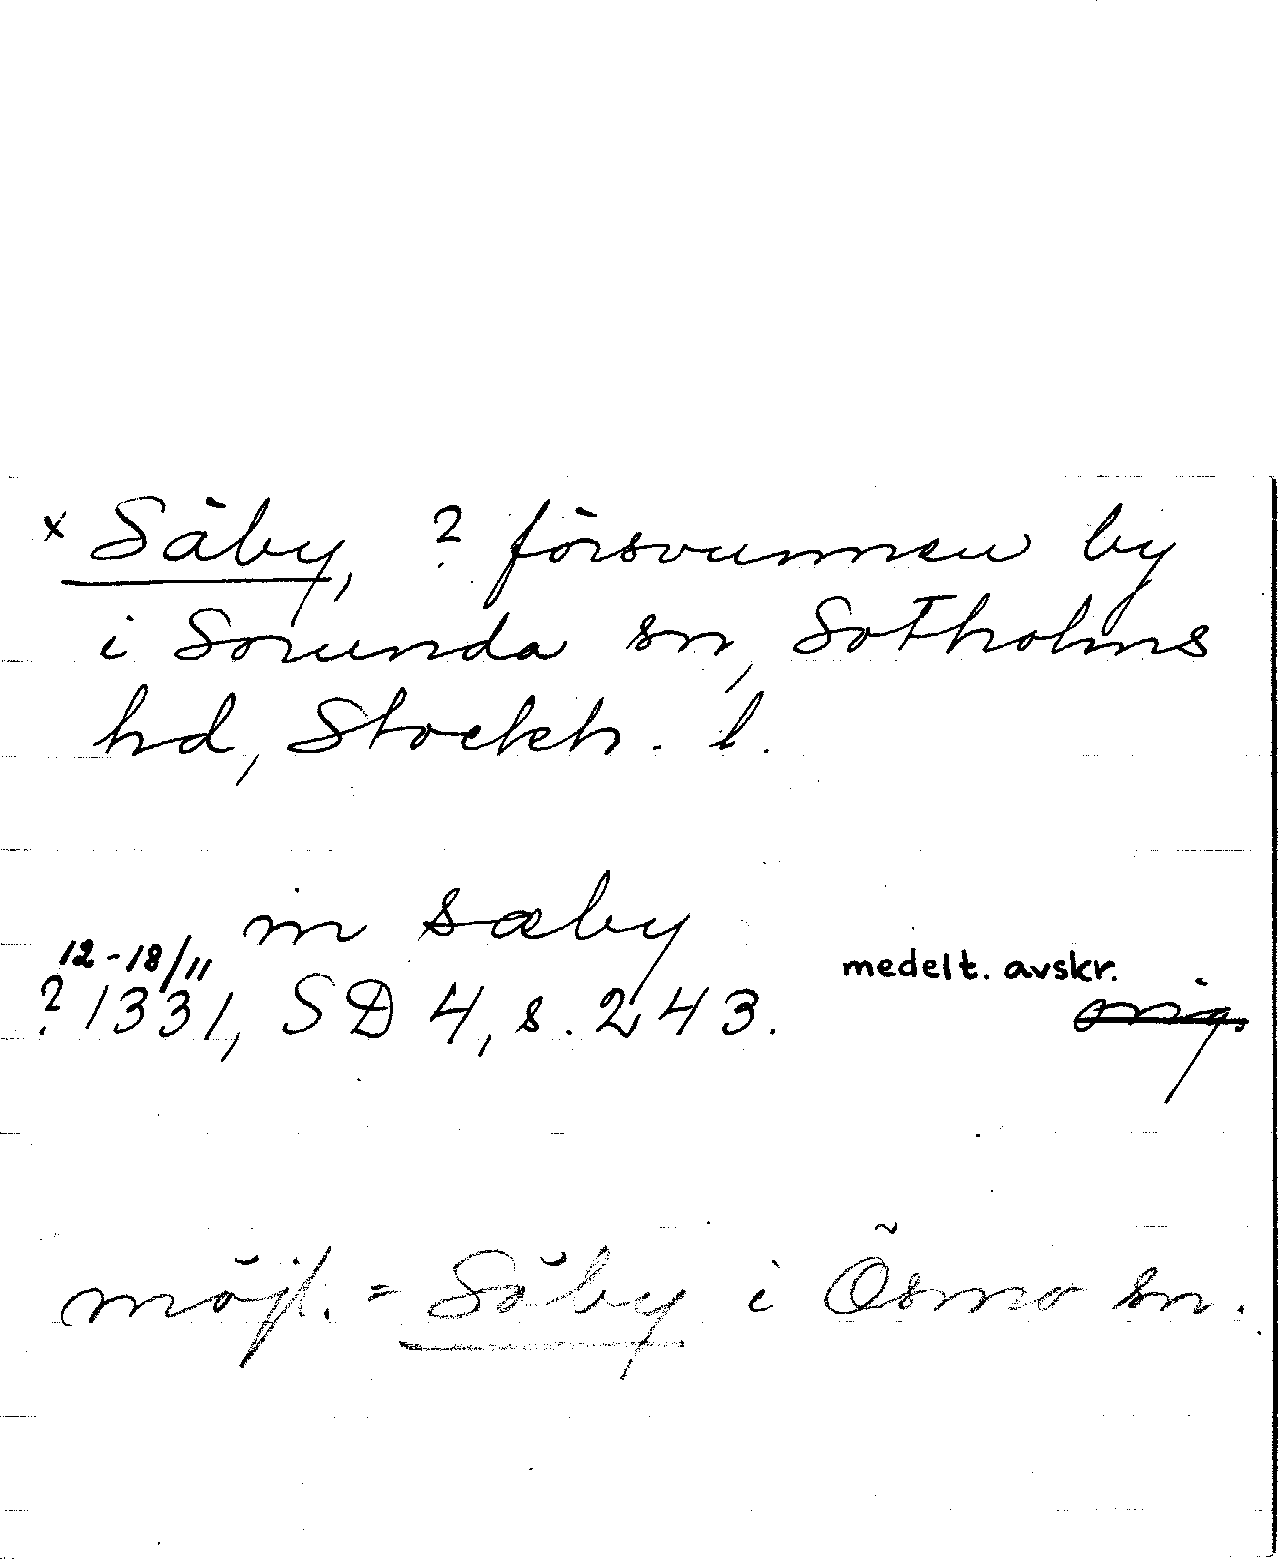 x Säby, ? försvunnen by
i Sorunda sn, Sotholms
hd, Stockh. l.
in sæby
12-18/11
? 1331, SD 4, s. 243.
medelt. avskr.
orig.
möjl. = Säby i Ösmo sn.